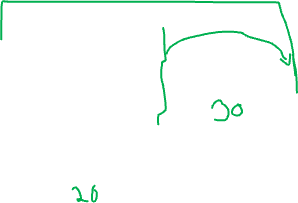 30
20